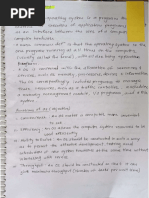 operating system is a program that
execution of application programs
an interface between the user of a computer
computer hardware.
A more common defⁿ is that the operating system is the
one program running at all times on the computer
(usually called the kernel), with all else being application
programs.
is concerned with the allocation of resources &
services, such as memory, processors, devices & information.
The OS correspondingly includes programs to manage
these resources, such as a traffic controller, a scheduler,
a memory management module, I/O programs, and a file
system.
Functions of
Convenience: An OS makes a computer more convenient to use.
Efficiency: An OS allows the computer system resources to be
used efficiently.
Ability to evolve: An OS should be constructed in such a way
as to permit the effective development, testing
and introduction of new system functions at
the same time without interfering with service.
Throughput: An OS should be constructed so that it can give
maximum throughput (number of tasks per unit time)